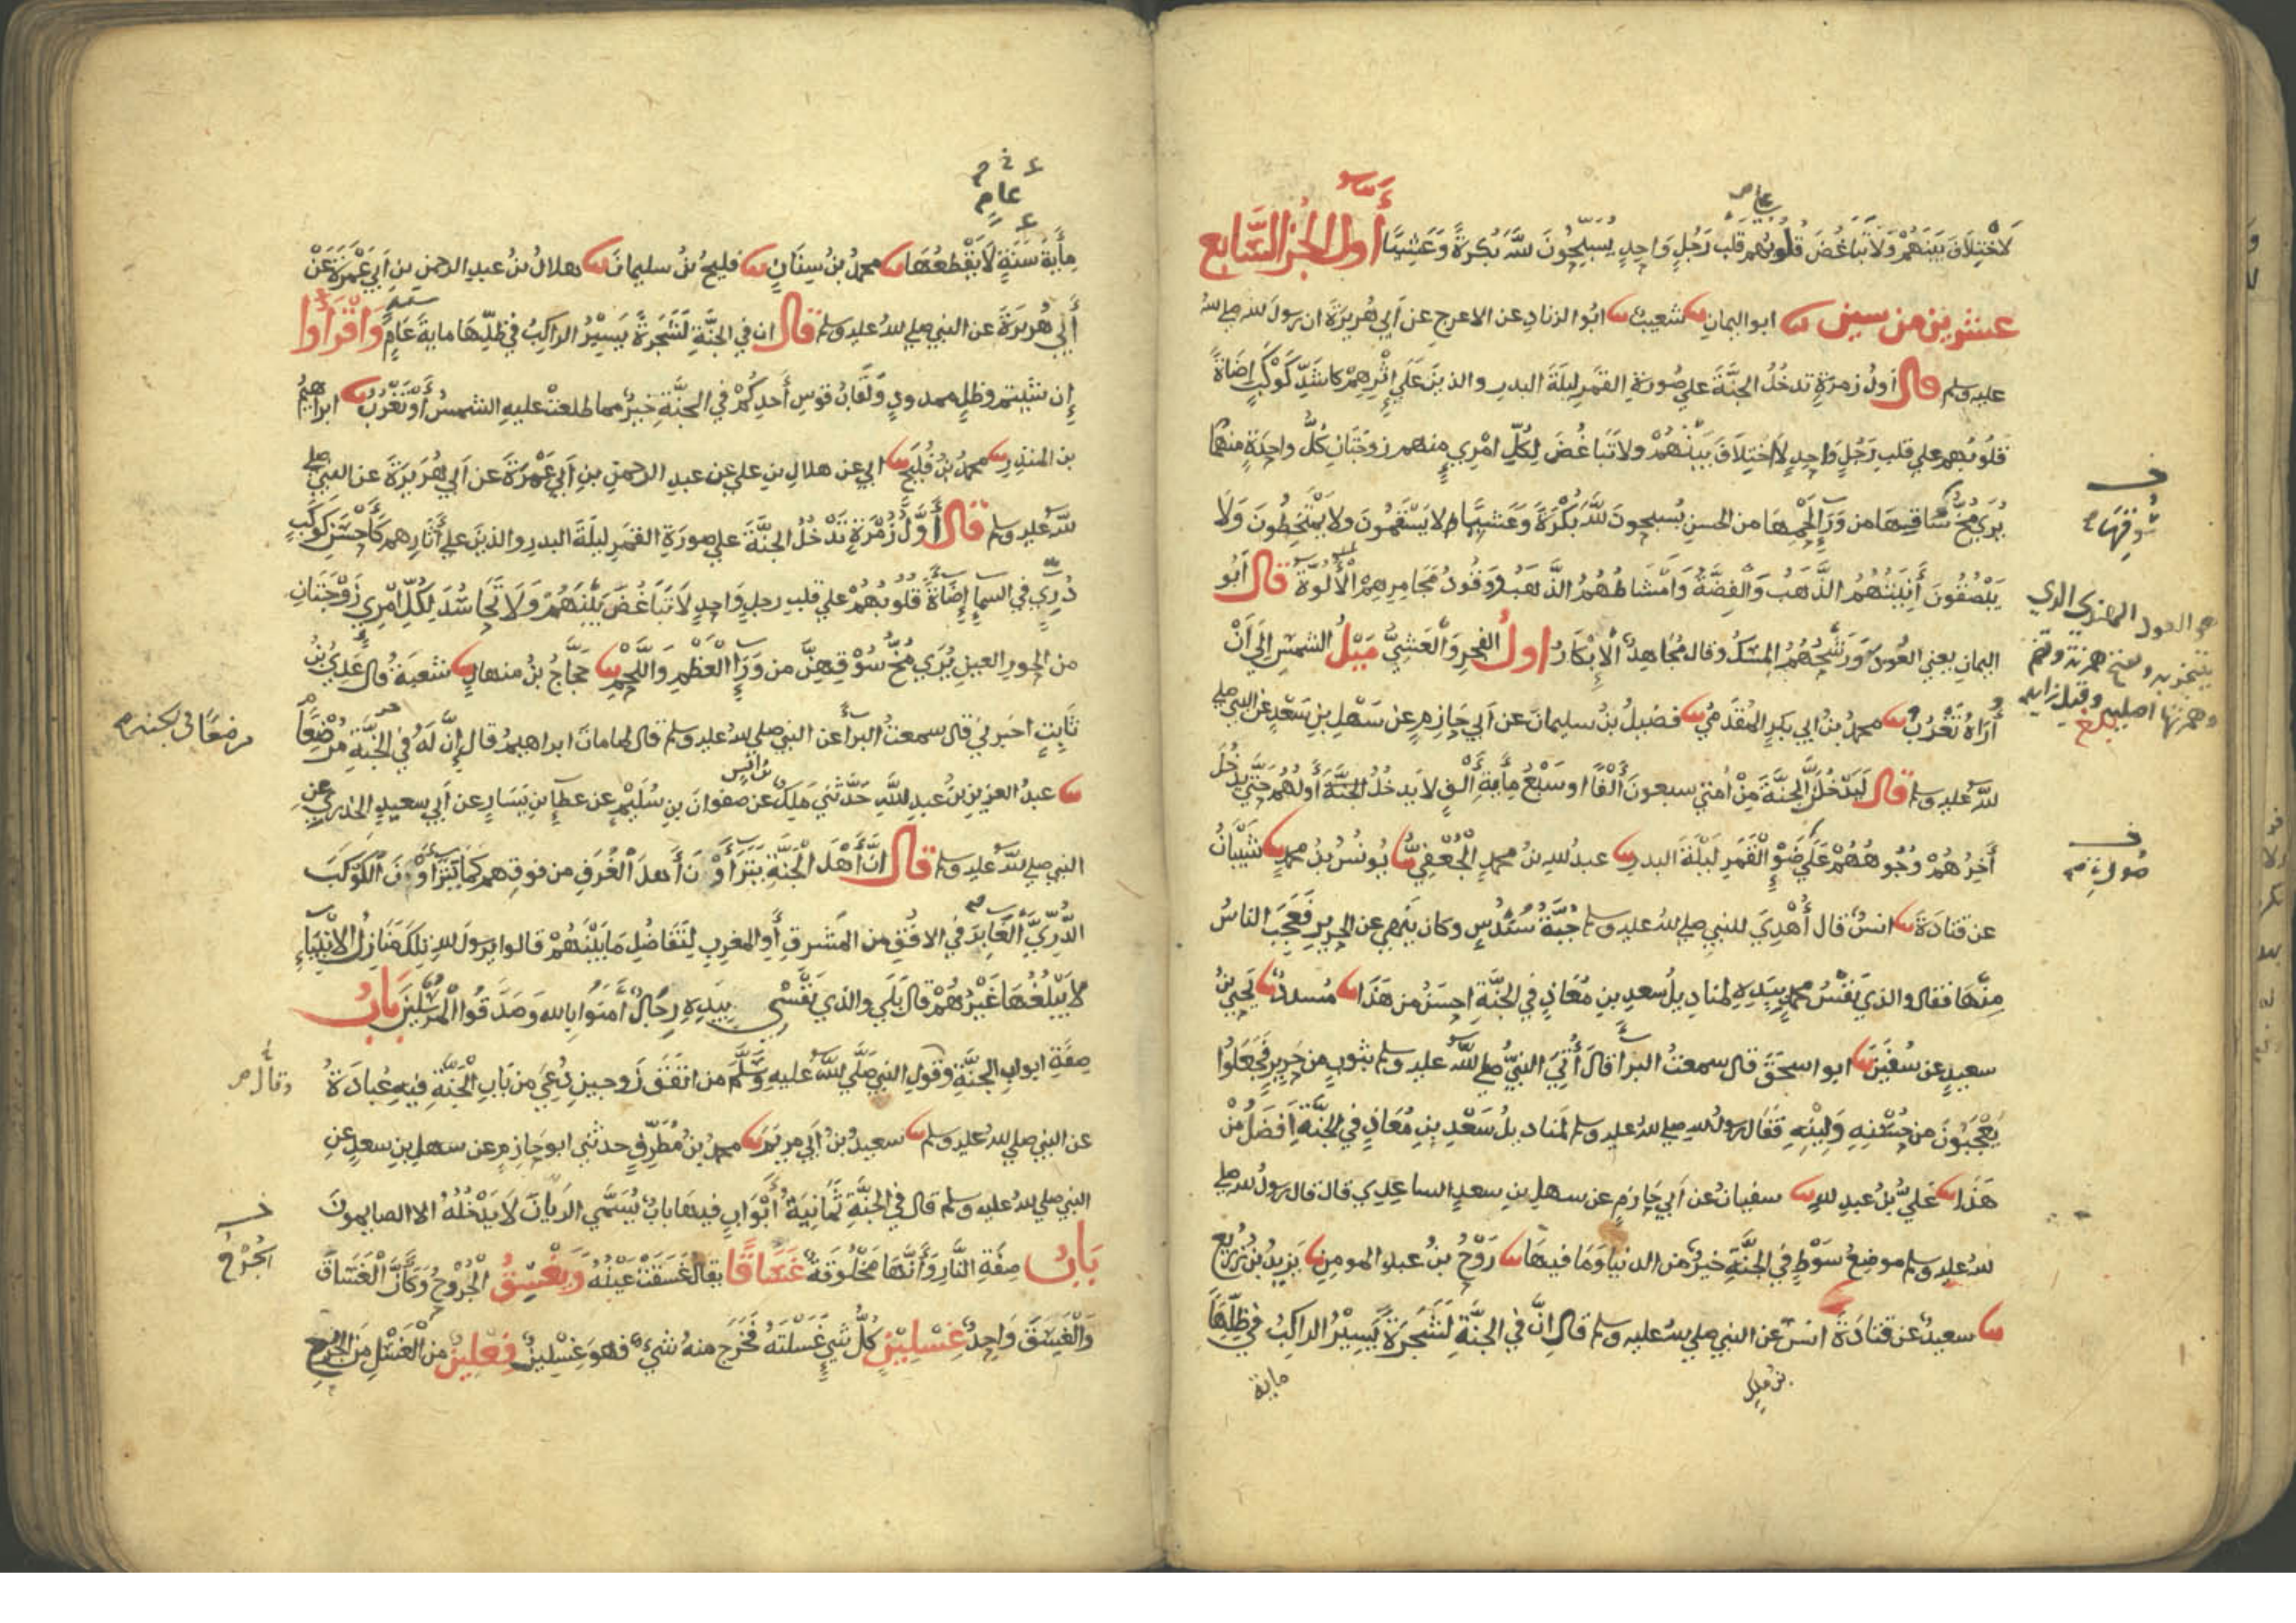 لَا اخْتِلَافَ بَيْنَهُمْ وَلَا تَبَاغُضَ قُلُوبُهُم قَلْبُ رَجُلٍ وَاحِدٍ يُسَبِّحُونَ للَّهَ بُكْرَةً وَعَشِيًّا أول الجزء السابع
عشرين من ستين ابو اليمانِ شعيبٌ ابُو الزنادِ عن الاعرجِ عن أبي هُرَيرَةَ ان رسولَ لله صلى لله
عليه وسلم قال اولُ زمرَةٍ تدخُلُ الجنَّةَ على صُورَةِ القمَرِ ليلَةَ البدرِ والذينَ عَلَى إِثْرِهِمْ كاشَدِّ كَوْكَبٍ إِضَاةً
قلُوبُهم على قلبِ رَجُلٍ وَاحِدٍ لَا اختِلَافَ بَيْنَهُمْ ولا تَبَاغُضَ لِكُلِّ امْرِيٍ منهم زوجَتَانِ كُلُّ واحِدَةٍ منهما
يُرَى مُخُّ سَاقِهَا من وَرَاءِ لَحْمِهَا من الحسنِ يُسبحونَ للَّهَ بُكْرَةً وَعَشيًّا لا يَسْقَمُونَ ولا يَمْتَخِطُونَ وَلَا
يَبْصُقُونَ أَنِيَتُهُمُ الذَّهَبُ وَالْفِضَّةُ وَأَمْشَاطُهُمُ الذَّهَبُ وَوَقُودُ مَجَامِرِهِمُ الْأَلُوَّةُ قال أَبُو
اليمانِ يعني العُودَ وَرَشْحُهُمُ المِسْكُ وقال مُجَاهِدٌ الْإِبْكَارُ اولُ الفجرِ وَالْعَشِيُّ مَيْلُ الشمسِ إِلَى أَنْ
أُرَاهُ تَغْرُبُ محمدُ بنُ ابي بكرٍ المُقَدَّمِيُّ فضيلُ بنُ سليمانَ عن أبي حَازِمٍ عن سَهْلِ بنِ سَعْدٍ عن النبي صلى
لله عليه وسلم قال لَيَدْخُلَنَّ الجنَّةَ مِنْ أُمتي سبعونَ أَلْفًا او سَبْعُ مِأَيةِ أَلْفٍ لا يَدخُلُ الجنَّةَ أَولُهُم حَتَّى يدخُلَ
أَخِرُهُمْ وُجُوهُهُمْ عَلَى ضَوْءِ الْقَمَرِ لَيْلَةَ البدرِ عبدُ لله بنُ محمدٍ الْجُعْفِيُّ يُونُسُ بنُ محمدٍ شَيْبَانُ
عن قتادَةَ انسٌ قال أُهْدِيَ للنبي صلى لله عليه وسلم جُبَّةُ سُنْدُسٍ وكان يَنْهَى عن الحريرِ فَعَجِبَ الناسُ
مِنْهَا فقال والذي نَفْسُ محمدٍ بِيَدِهِ لمناديلُ سعدِ بنِ مُعَاذٍ في الجنَّةِ احسَنُ من هَذَا مُسدَّدٌ يَحْيَى بنُ
سعيدٍ عن سُفْيَنَ ابو اسحَقَ قال سمعتُ البرَأَ قَالَ أُتِيَ النبيُّ صلى للَّهُ عليه وسلم بثوبٍ من حَرِيرٍ فَجَعَلُوا
يَعْجَبُونَ من حُسْنِهِ وَلِينِهِ فَقَالَ رسولُ لله صلى لله عليه وسلم لمناديلُ سَعْدِ بنِ مُعَاذٍ في الجَنَّةِ أَفضَلُ مِنْ
هَذَا عَلِيُّ بْنُ عبدِ للهِ سفيانُ عن أبي حَازِمٍ عن سهلِ بنِ سعدٍ الساعِدِيِّ قال قال رسولُ لله صلى
لله عليه وسلم موضِعُ سَوْطٍ في الجنَّةِ خيرٌ من الدنيا وَمَا فيهَا رَوْحُ بنُ عبدِ المومنِ يَزِيدُ بنُ زُرَيْعٍ
سعيدٌ عن قتادَةَ انسٌ عن النبي صلى لله عليه وسلم قال إنَّ في الجنَّةِ لَشَجَرَةً يَسِيْرُ الراكِبُ في ظِلِّهَا
بن ملك
ماية
سُوقِهَا
هو العود الهندي الذي
يتبخر به
وهمزتها اصلية وقيل زايدة
بلغ
صُورَةِ
عامٍ
مِأَيةَ سَنَةٍ لَا يَقْطَعُهَا محمدُ بنُ سِنَانٍ فليحُ بنُ سليمانَ هلالُ بنُ عبدِ الرحمنِ بنِ أبي عَمْرَةَ عَنْ
أَبِي هُريرَةَ عن النبي صلى لله عليه وسلم قَال ان في الجنَّةِ لَشَجَرةً يَسِيْرُ الراكِبُ في ظِلِّهَا مايةَ عَامٍ وَاقْرَأُوا
إِن شئتم وظلٍ ممدودٍ وَلَقَابُ قوسِ أَحدِكُمْ في الجنَّةِ خيرٌ مما طلعتْ عليهِ الشمسُ أَوْ تَغْرُبُ ابراهِيمُ
بن المنذِرِ محمدُ بنُ فُلَيحٍ ابي عن هلالِ بنِ علي عن عبدِ الرحمنِ بنِ أبي عَمْرَةَ عن أبي هُرَيرَةَ عن النبي صلى
لله عليه وسلم قال أَوَّلُ زُمْرَةٍ تَدْخُلُ الجنَّةَ على صورَةِ القمَرِ ليلَةَ البدرِ والذينَ على أَثَارِهِم كَأَحْسَنِ كَوْكَبٍ
دُرِّيٍّ في السمإ إِضَاةً قُلُوبُهُمْ على قلبِ رجلٍ وَاحِدٍ لَا تَبَاغُضَ بَيْنَهُمْ وَلَا تَحَاسُدَ لِكُلِّ امْرِيٍ زَوْجَتَانِ
من الحورِ العينِ يُرَى مُخُّ سُوْقِهِنَّ من وَرَإِ الْعَظْمِ وَاللَّحْمِ حَجَّاجُ بنُ منهالٍ شعبَةُ قال عَدِيُّ بنُ
ثَابِتٍ اخبرني قال سمعتُ البرأ عن النبي صلى لله عليه وسلم قال لما ماتَ ابراهيمُ قال إِنَّ لَهُ في الجنَّةِ مُرْضِعًا
عبدُ العزيزِ بنُ عبدِ للَّهِ حَدَّثني مَلِكٌ بن انس عن صفوانَ بنِ سُلَيْمٍ عن عطإِ بنِ يَسَارٍ عن أبي سعيدٍ الخدري عن
النبي صلى لله عليه وسلم قال إنَّ أَهْلَ الْجَنَّةِ يَتَرَاَوْنَ أَهلَ الْغُرَفِ من فوقِهم كَمَا يَتَرَاَوْنَ الْكَوْكَبَ
الدُّرِّيَّ الْغَابِرَ في الافُقِ من المَشرقِ أَو المغرِبِ لِتَفَاضُلِ مَا بَيْنَهُمْ قالوا يرسولَ لله تِلكَ مَنَازِلُ الأنْبِيَاءِ
لَا يَبْلُغُهَا غَيْرُهُمْ قَالَ بَلَى والذي نَفْسِي بِيَدِهِ رِجَالٌ أَمَنُوا بِاللهِ وَصَدَّقُوا الْمُرْسَلِينَ بَابُ
صِفَةِ ابوابِ الجنَّةِ وقولِ النبي صَلَّى للَّهُ عليهِ وَسَلَّمَ من انفَقَ زَوجينِ دُعِيَ مِن بَابِ الْجَنَّةِ فيهِ عُبَادَةُ
عن النبي صلى لله عليه وسلم سعيدُ بنُ أبي مريَمَ محمدُ بنُ مُطَرِّفٍ حدثني ابو حَازِمٍ عن سهلِ بنِ سعدٍ عن
النبي صلى لله عليه وسلم قال في الجنَّةِ ثَمَانِيَةُ أَبْوَابٍ فيهَا بابٌ يُسَمَّى الرَّيَّانَ لَا يَدْخُلُهُ الا الصايمونَ
بَابُ صِفَةِ النَّارِ وَأَنَّهَا مَخْلُوقَةٌ غَسَّاقًا يقال غَسَقَتْ عَيْنُهُ وَيَغْسِقُ الْجُرْوحُ وَكَأَنَّ الْغَسَّاقَ
وَالْغَسِيقَ وَاحِدٌ غِسْلِيْنٍ كُلُّ شَيٍ غَسَلْتَهُ فَخَرَجَ منهُ شيءٌ فهوَ غِسْلِينٌ فِعْلِينٌ مِنَ الْغَسْلِ مِنَ الجُرْحِ
مرضعًا في الجنة
وقال
الجُرْحُ